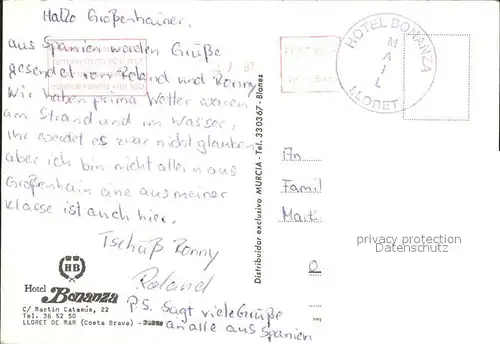 Hallo Großenhainer,
aus Spanien werden Grüße
gesendet von Roland und Ronny
Wir haben prima Wetter waren
am Strand und im Wasser,
Ihr werdet es zwar nicht glauben
aber ich bin nicht allein aus
Großenhain eine aus meiner
Klasse ist auch hier.
Tschüß Ronny
Roland
P.S. Sagt viele Grüße
an alle aus Spanien
HB
Hotel
Bonanza
C/ Martin Catamús, 22
Tel. 36 52 50
LLORET DE MAR (Costa Brava) -
Distribuidor exclusivo MURCIA - Tel. 330367 - Blanes
HOTEL BONANZA
MAIL
LLORET
An
Famil
Marti
privacy protection
Datenschutz
O